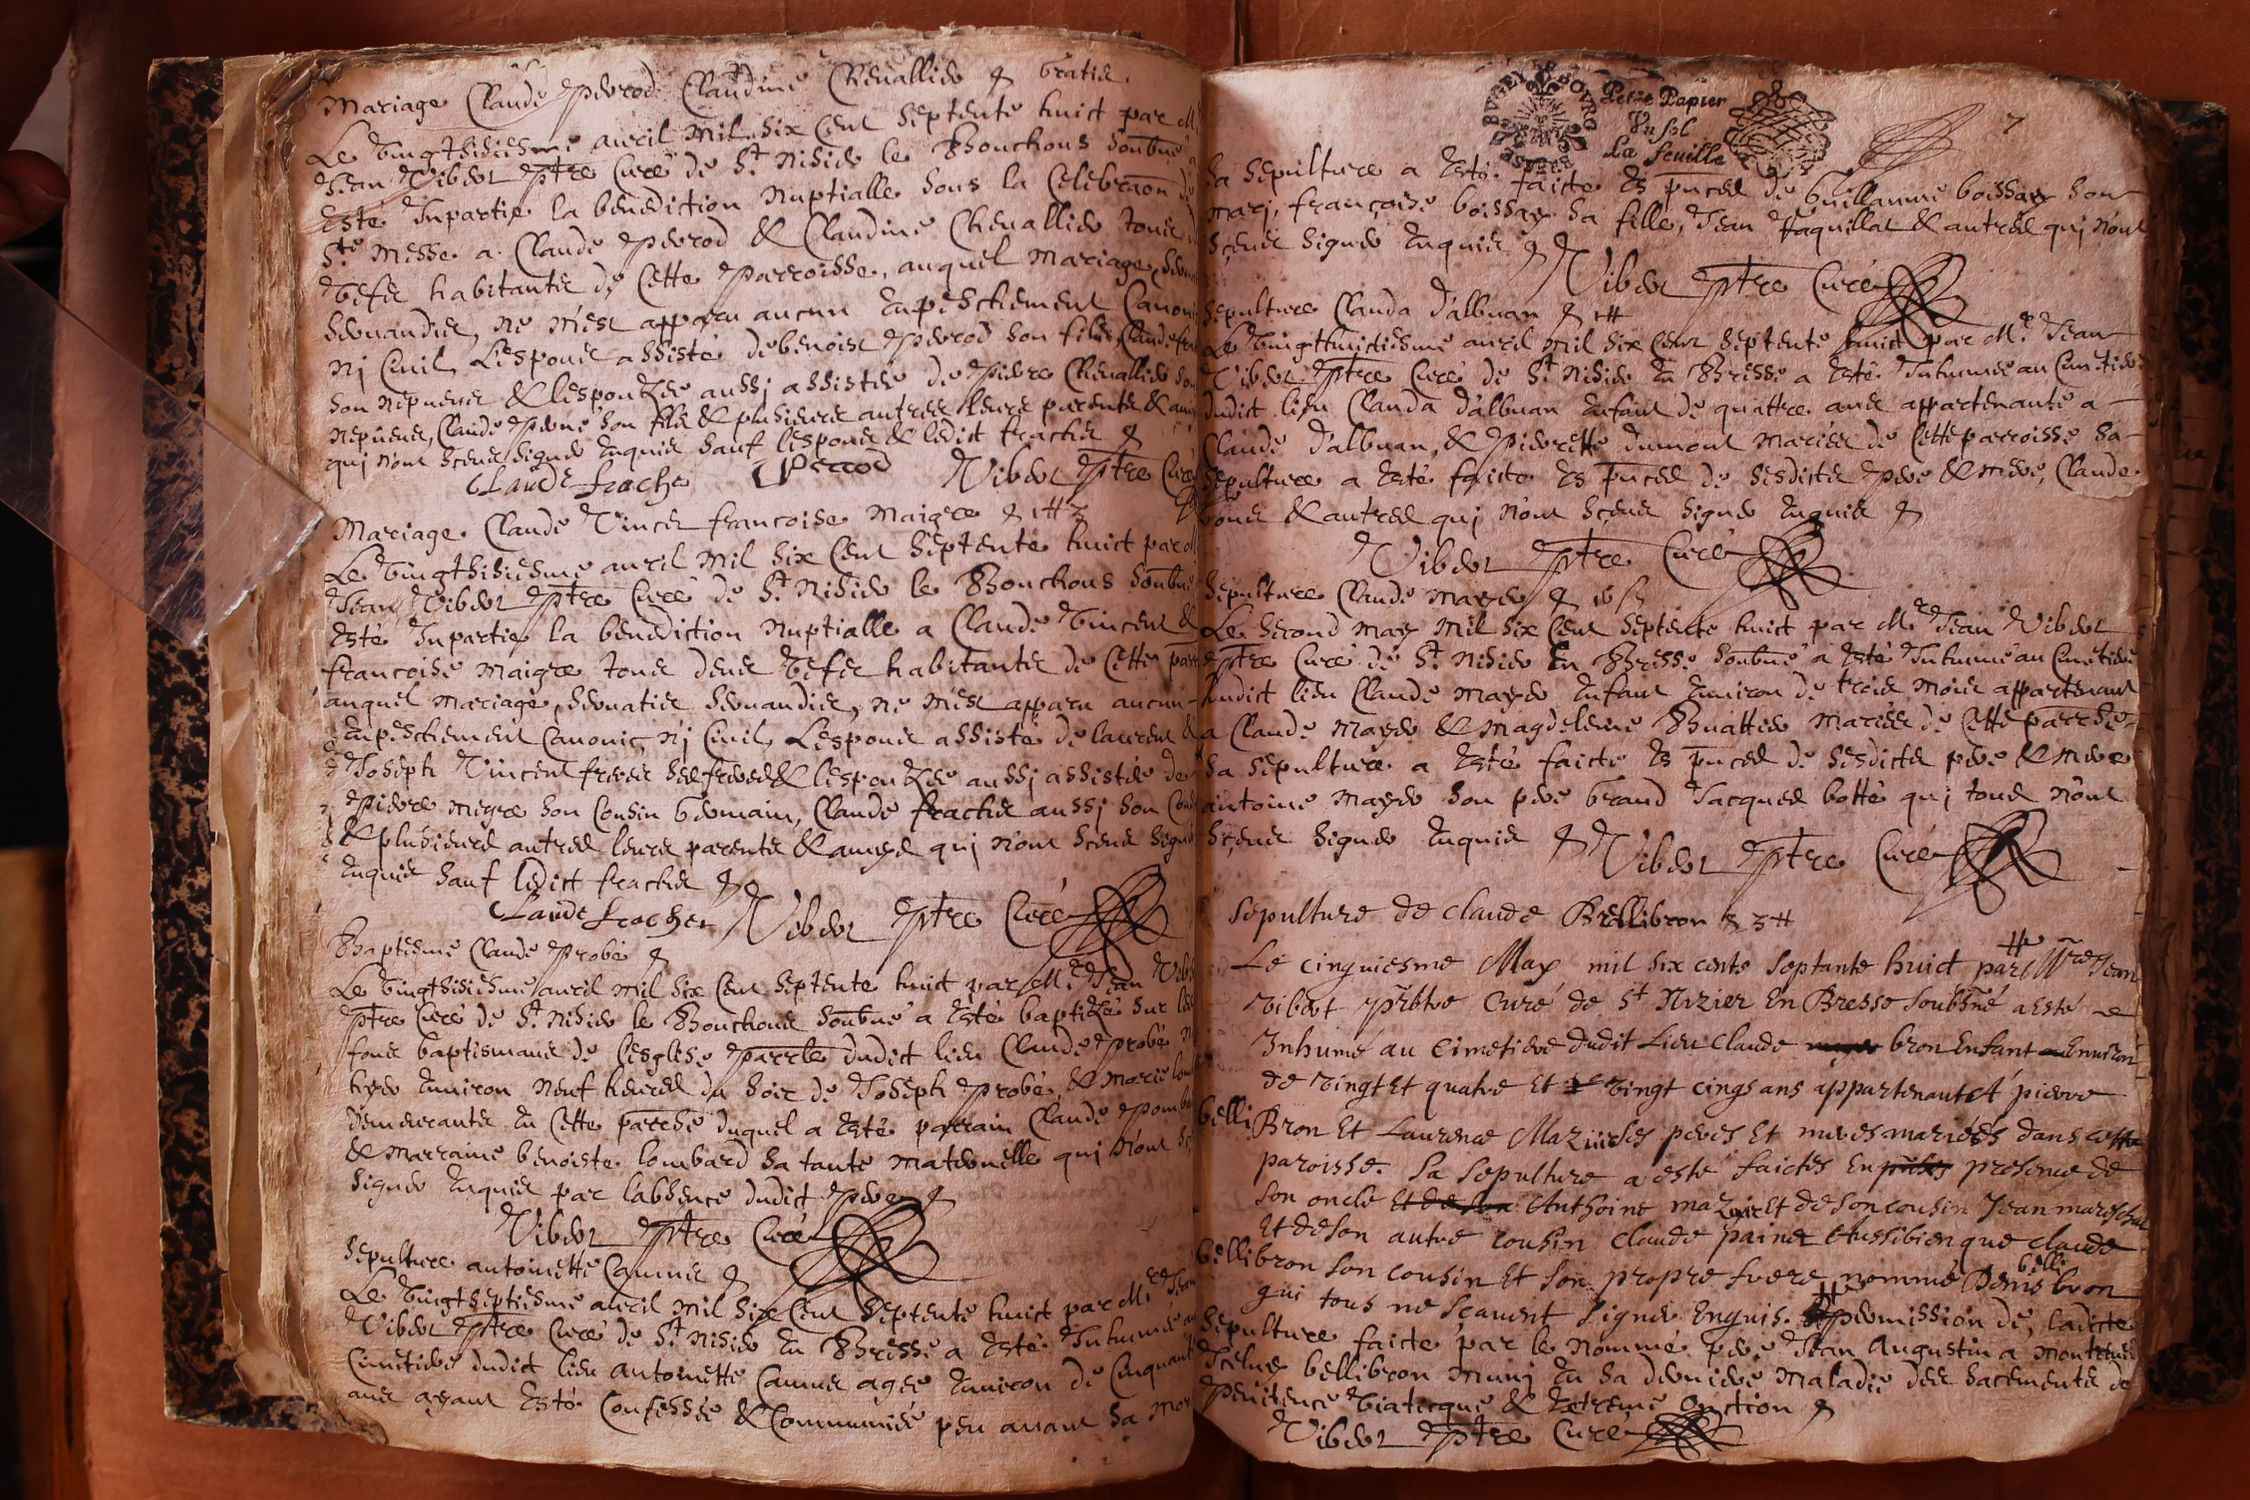 Mariage Claude Perrod Claudine Chevallier & Gratis
Le vingtsisiesme avril mil six cent septente huict par
Jean Vibert ptre Curé de St Nisier le Bouchous soubné
esté Inpartie la benediction Nuptialle sous la Celebraon de
Ste Messe a Claude Perrod & Claudine Chevallier tous
vefs habitants de Cette Parroisse, auquel Mariage
ne m'est apparu aucun Enpeschement Canonic
nj Civil, L'espoux assisté de benoist Perrod son filz, Claude
son nepveux & lespouzée aussj assistée de Pierre Chevallier son
nepveux, Claude son filz & plusieurs autres leurs parents & amys
quj n'ont sceu signer Enquis sauf l'espoux & ledict frachet &
Claude frachet Perrod Vibert ptre Curé
Mariage Claude Vincent francoise Maigre &
Le vingtsisiesme avril mil six Cent septente huict par
Jean Vibert ptre Curé de St Nisier le Bouchous soubné
esté Inpartie la benediction Nuptialle a Claude Vincent &
francoise Maigre tous deux vefs habitants de Cette
auquel mariage, ne m'est apparu aucun
Enpeschement Canonic, nj Civil, L'espoux assisté de laurent &
Joseph Vincent freres & lespouzée aussj assistée de
Pierre megre son Cousin Germain, Claude frachet aussj son
& plusieurs autres leurs parents & amys quj n'ont sceu signer
Enquis sauf ledict frachet &
Claude frachet Vibert ptre Curé
Baptesme Claude Probé &
Le vingtsisiesme avril mil six Cent septente huict par Mre Jean
ptre Curé de St Nisier le Bouchous soubné a esté baptizé sur les
fons baptismaux de l'esglise dudict lieu Claude Probé
hyer Environ neuf heures du soir de Joseph Probé, & Marie
demeurants En Cette duquel a esté parrain Claude
& marraine benoiste lombard sa tante maternelle quj n'ont
signer Enquis par l'absence dudict Pere &
Vibert ptre Curé
Sepulture antoinette &
Le vingtseptiesme avril mil six Cent septente huict par Mre Jean
Vibert ptre Curé de St Nisier En Bresse a esté Inhumée au
Cimetiere dudict lieu antoinette agée Environ de Cinquante
ans ayant esté Confessée & Communiée peu avant sa mort
Petit Papier
Un sol
La feuille
7
Sa sepulture a esté faicte Es pnces de Guillaume boissay son
marj, françoise boissay sa fille, Jean & autres quj n'ont
sceu signer Enquis &
Vibert ptre Curé
Sepulture Clauda d'alban &
Le vingthuictiesme avril mil six Cent septente huict par Mre Jean
Vibert ptre Curé de St Nisier En Bresse a esté Inhumée au Cimetiere
dudict lieu Clauda d'alban Enfant de quattre ans appartenante a
Claude d'alban, & Pierrette dumont mariés de Cette parroisse Sa
sepulture a esté faicte Es pnces de sesdicts pere & mere, Claude
& autres quj n'ont sceu signer Enquis &
Vibert ptre Curé
Sepulture Claude mayer &
Le second may mil six Cent septente huict par Mre Jean Vibert
ptre Curé de St Nisier En Bresse soubné a esté Inhumé au Cimetiere
dudict lieu Claude mayer Enfant Environ de trois mois appartenant
a Claude mayer & magdeleine Buattier mariés de Cette
Sa sepulture a esté faicte Es pnces de sesdicts pere & mere
antoine mayer son pere Grand Jacques botté quj tous n'ont
sceu signer Enquis &
Vibert ptre Curé
Sepulture de claude Bellibron
Le cinquiesme May mil six cents septante huict par Mre Jean
Vibert prbtre Curé de St Nizier En Bresse soubsné a esté
Inhumé au cimetiere dudit Lieu claude bron Enfant Environ
de vingt Et quatre Et vingt cinqs ans appartenant A pierre
belli Bron Et Laurence ses peres Et meres mariés dans cette
paroisse. sa sepulture a este faictes En presence de
son oncle Anthoine Et de son cousin Jean mareschal
Et de son autre cousin claude painet Aussi bien que claude
bellibron son cousin Et son propre frere nommé Denis belli bron
qui tous ne scavent signer Enquis. permission de, ladicte
Sepulture faicte par le nommé pere Jean Augustin a
Iceluy bellibron munj En sa derniere maladie des sacements de
Penitence Viaticque & Extreme Onction &
Vibert ptre Curé